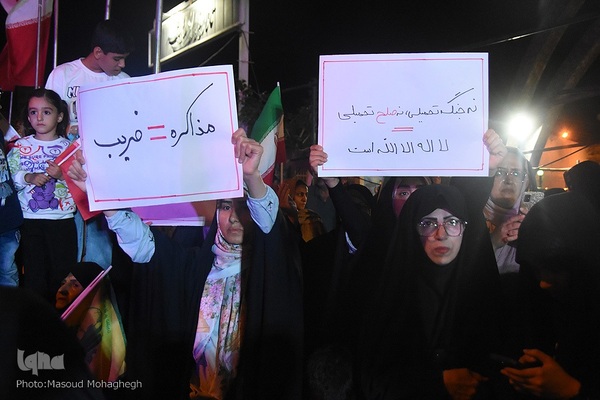 مذاکره = فریب
نه جنگ تحمیلی، نه صلح تحمیلی
=
لا اله الا الله است
iqna
Photo:Masoud Mohaghegh